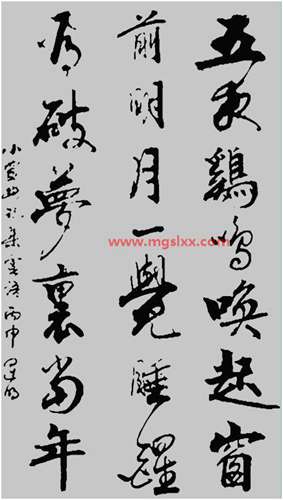 五夜鷄鳴喚起窗
前明月一覺睡醒
看破夢裏當年
小窗幽記集 丙申
www.mgslxx.com